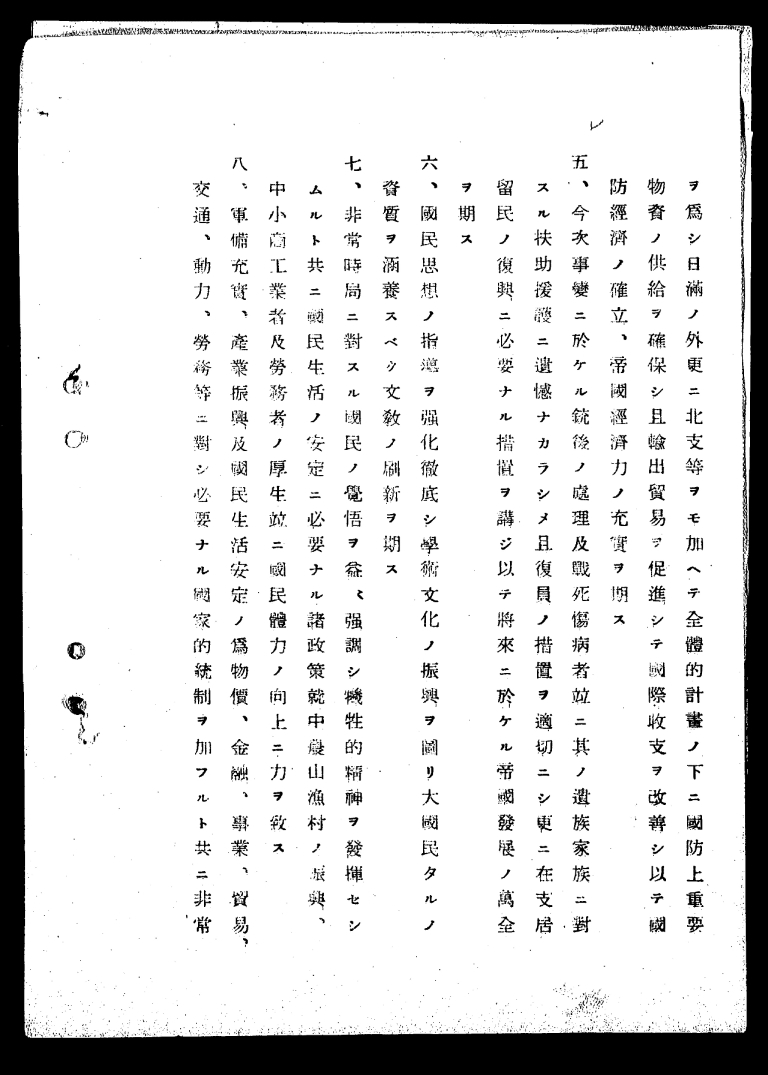 ヲ爲シ日滿ノ外更ニ北支等ヲモ加ヘテ全體的計畫ノ下ニ國防上重要
物資ノ供給ヲ確保シ且輸出貿易ヲ促進シテ國際收支ヲ改善シ以テ國
防經濟ノ確立、帝國經濟力ノ充實ヲ期ス
五、今次事變ニ於ケル銃後ノ處理及戰死傷病者竝ニ其ノ遺族家族ニ對
スル扶助援護ニ遺憾ナカラシメ且復員ノ措置ヲ適切ニシ更ニ在支居
留民ノ復興ニ必要ナル措置ヲ講ジ以テ將來ニ於ケル帝國發展ノ萬全
ヲ期ス
六、國民思想ノ指導ヲ强化徹底シ學術文化ノ振興ヲ圖リ大國民タルノ
資質ヲ涵養スベク文敎ノ刷新ヲ期ス
七、非常時局ニ對スル國民ノ覺悟ヲ益〻强調シ犧牲的精神ヲ發揮セシ
ムルト共ニ國民生活ノ安定ニ必要ナル諸政策就中農山漁村ノ振興、
中小商工業者及勞務者ノ厚生竝ニ國民體力ノ向上ニ力ヲ致ス
八、軍備充實、產業振興及國民生活安定ノ爲物價、金融、事業、貿易、
交通、動力、勞務等ニ對シ必要ナル國家的統制ヲ加フルト共ニ非常